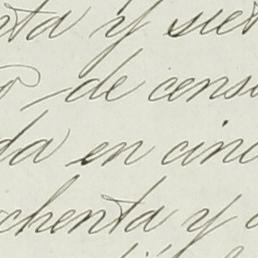 nta y siet
de censo
da en cinc
chenta y